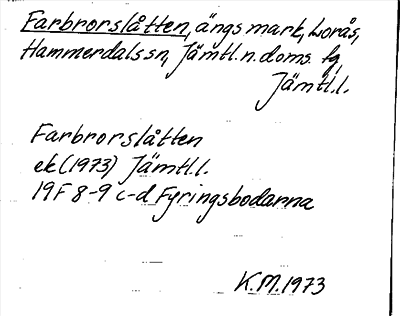 Farbrorslåtten, ängsmark, Lorås,
Hammerdals sn, Jämtl.n.doms. fg,
Jämtl.l.
Farbrorslåtten
ek (1973) Jämtl.l.
19F 8-9 c-d Fyringsbodarna
K.M. 1973